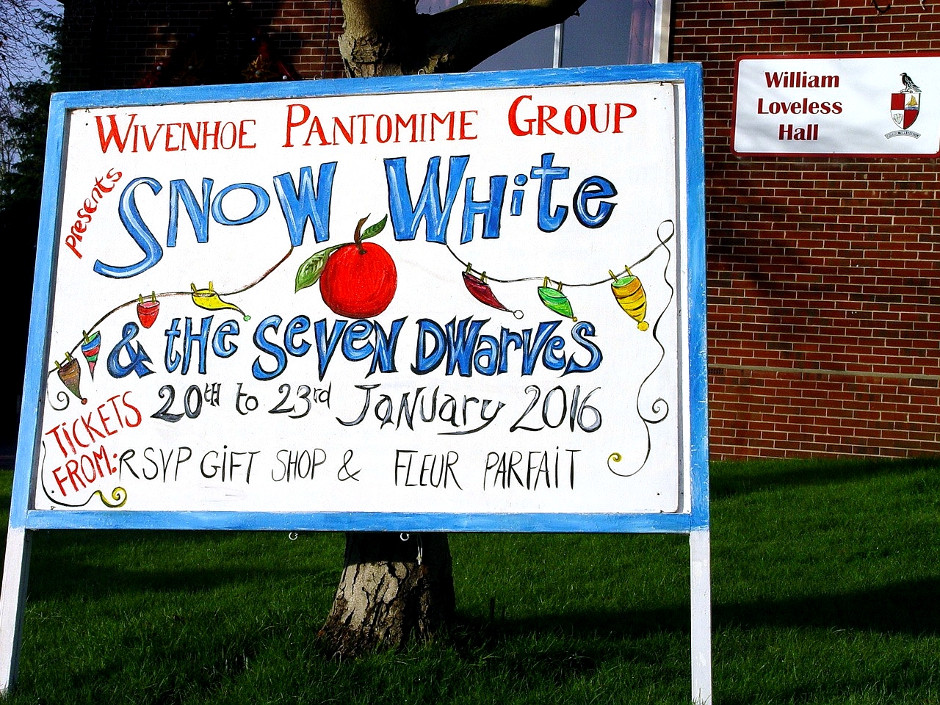 Wivenhoe Pantomime Group
presents
Snow White
& the Seven Dwarves
20th to 23rd January 2016
TICKETS FROM:
RSVP GIFT SHOP & FLEUR PARFAIT
William
Loveless
Hall